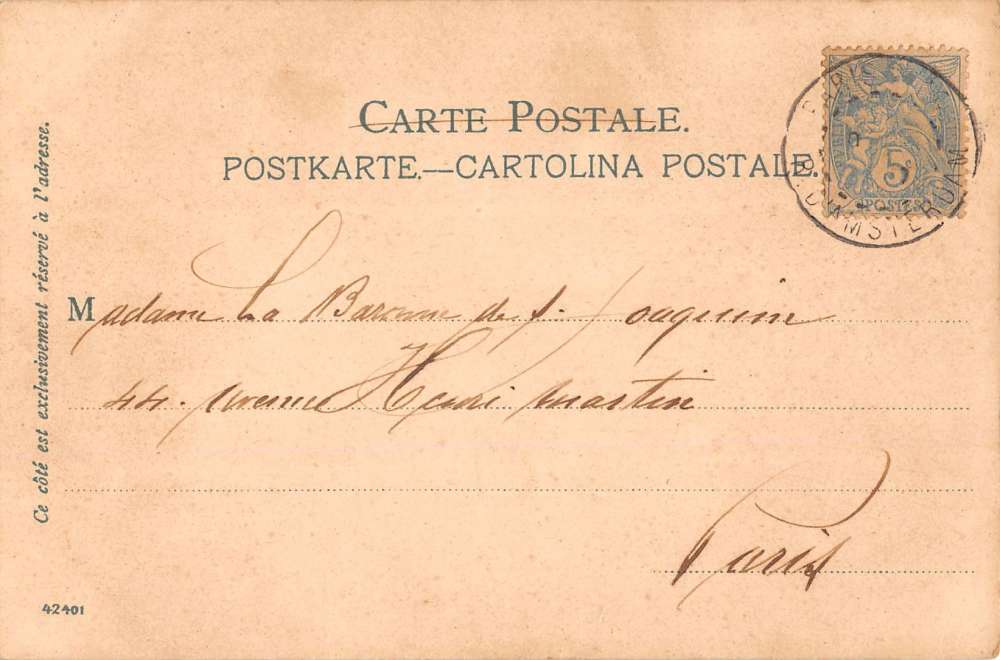 CARTE POSTALE.
POSTKARTE.—CARTOLINA POSTALE.
5
POSTES
PARIS
R. D'AMSTERDAM
Ce côté est exclusivement réservé à l'adresse.
Madame La Baronne de S. Joaquim
44. avenue Henri Martin
Paris
42401